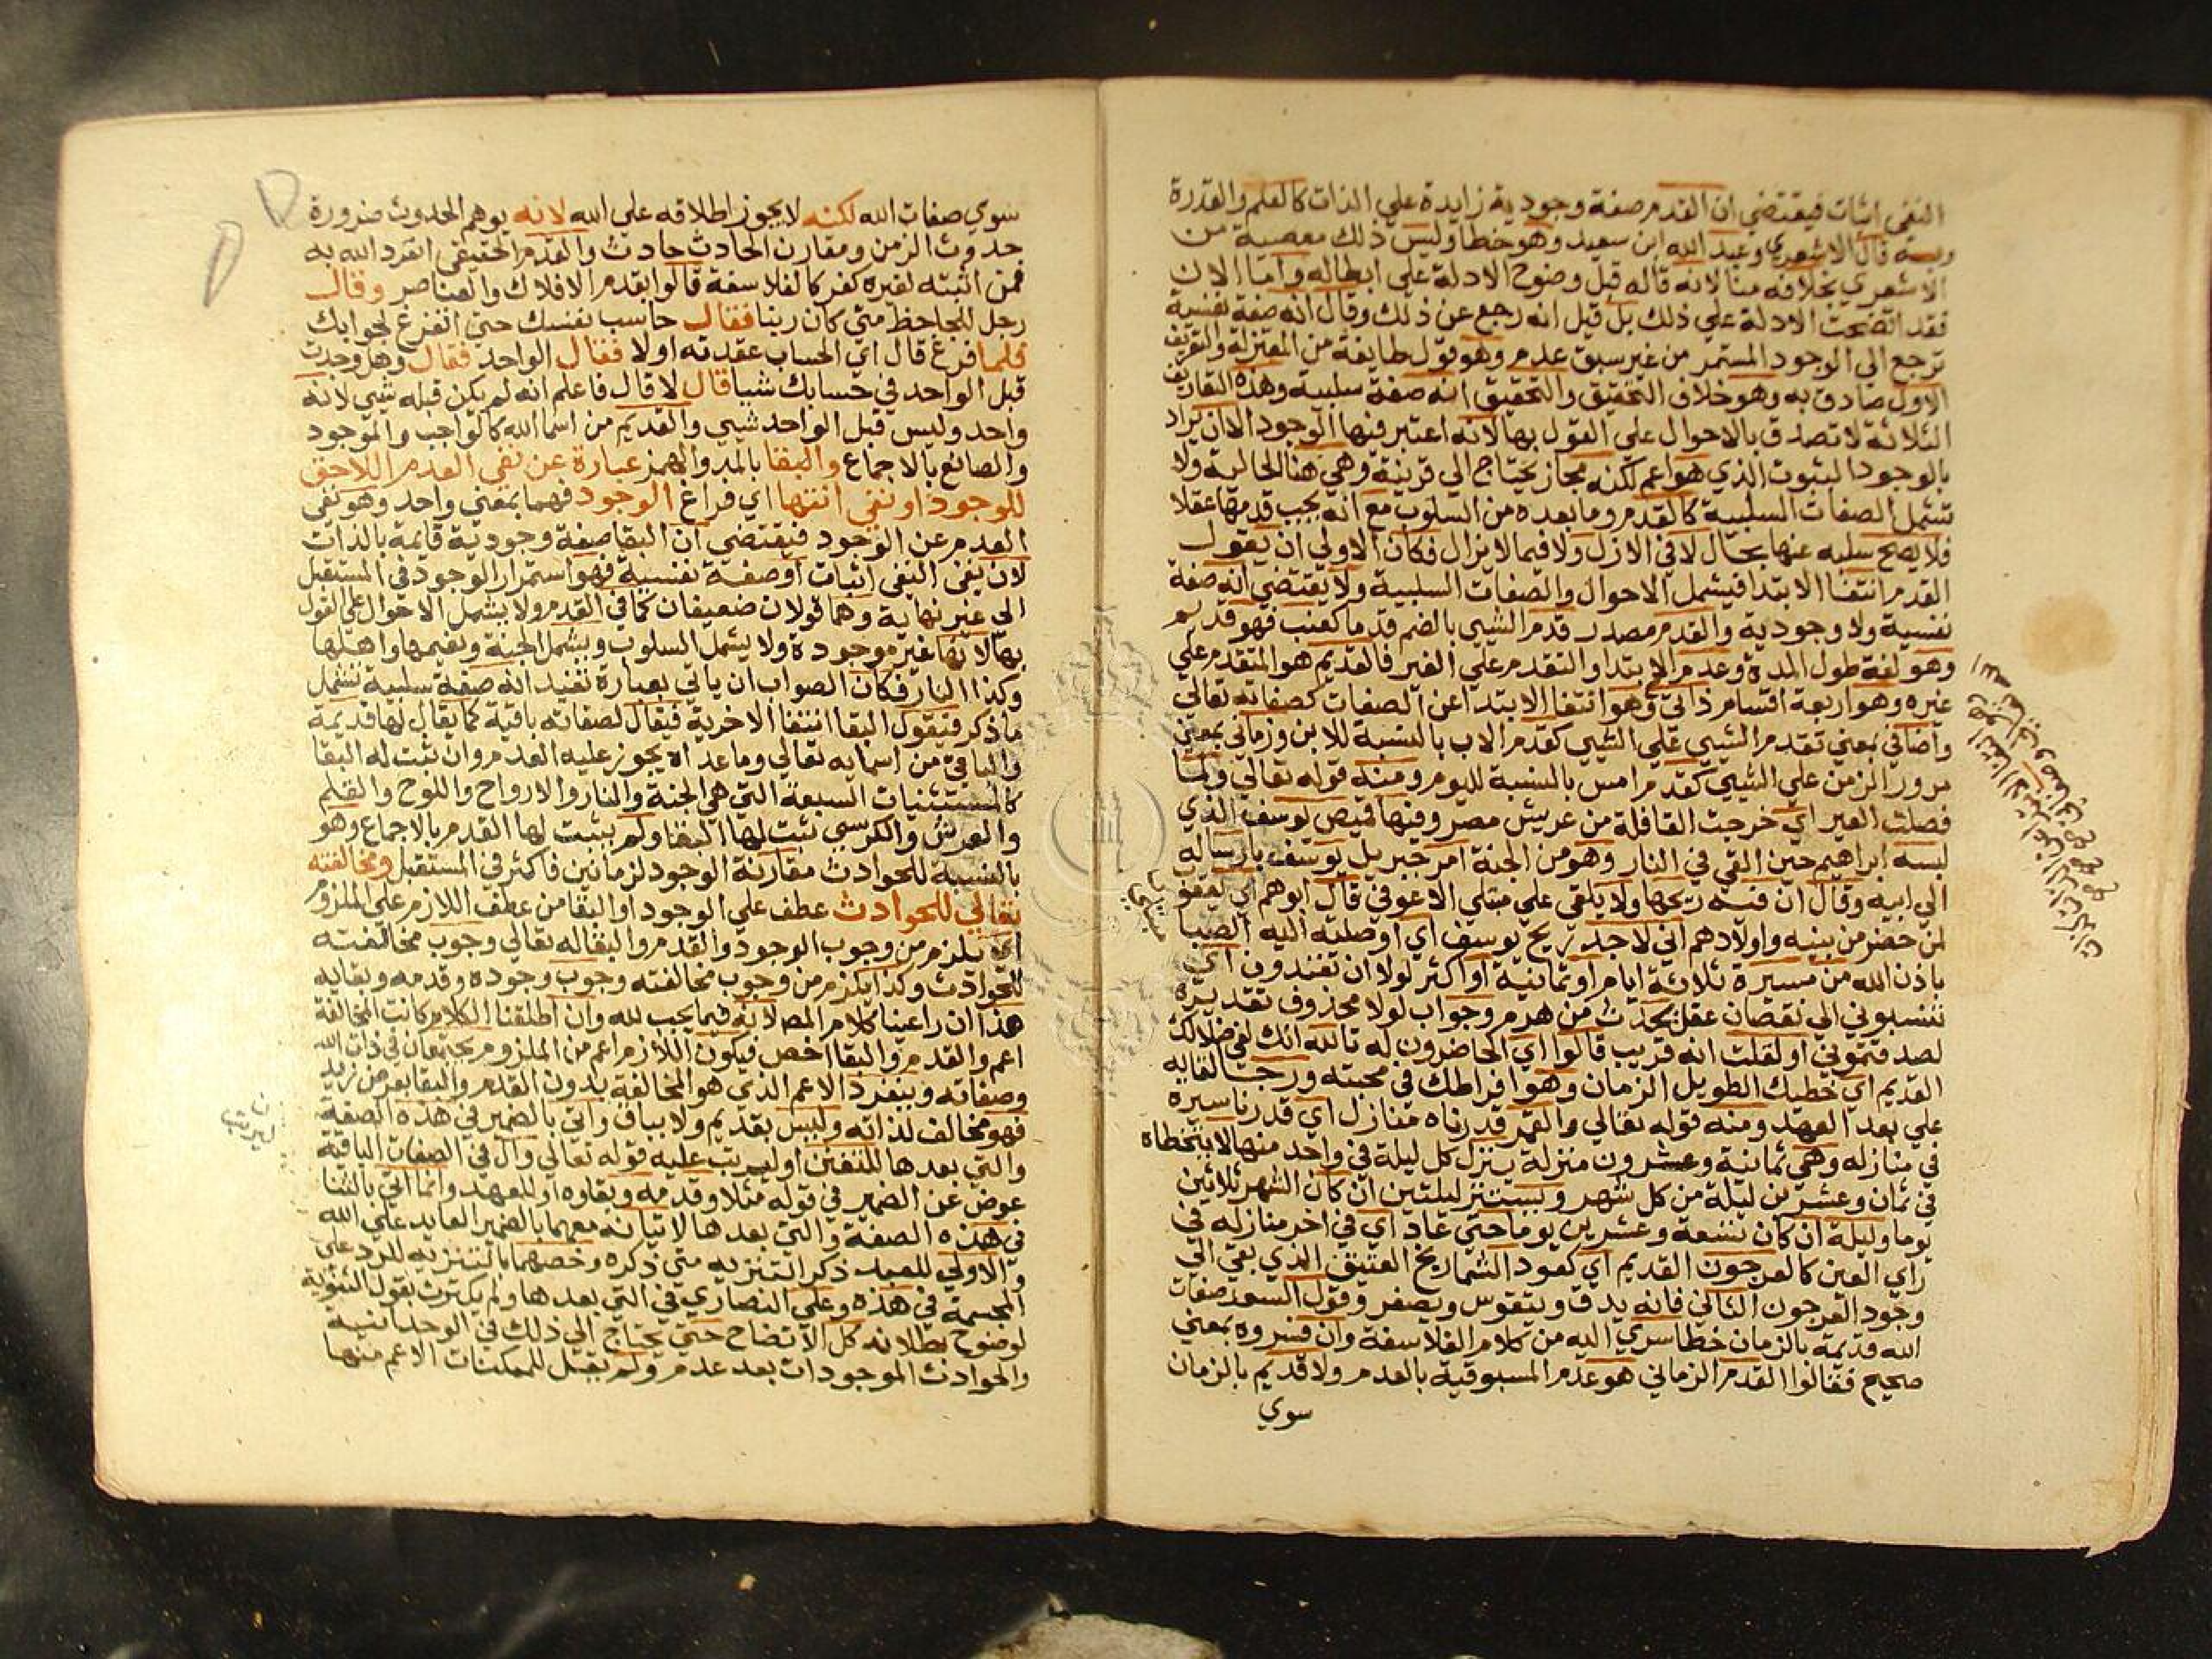 النفي اثبات فيقتضي ان القدم صفة وجودية زايدة علي الذات كالعلم والقدرة
وبه قال الاشعري وعبد الله ابن سعيد وهو خطا وليس ذلك معصية من
الاشعري بخلافه منا لانه قاله قبل وضوح الادلة علي ابطاله واما الان
فقد اتضحت الادلة علي ذلك بل قيل انه رجع عن ذلك وقال انه صفة نفسية
ترجع الي الوجود المستمر من غير سبق عدم وهو قول طايفة من المعتزلة والتعريف
الاول صادق به وهو خلاف التحقيق والتحقيق انه صفة سلبية وهذه التعاريف
الثلاثة لا تصدق بالاحوال علي القول بها لانه اعتبر فيها الوجود الا ان يراد
بالوجود الثبوت الذي هو اعم لكنه مجاز يحتاج الي قرينة وهي هنا الحالية ولا
تشمل الصفات السلبية كالقدم وما بعده من السلوب مع انه يجب قدمها عقلا
فلا يصح سلبه عنها بحال لا في الازل ولا فيما لا يزال فكان الاولي ان يقول
القدم انتفا الابتدا فيشمل الاحوال والصفات السلبية ولا يقتضي انه صفة
نفسية ولا وجودية والقدم مصدر قدم الشيي بالضم قدما كعنب فهو قديم
وهو لغة طول المدة وعدم الابتدا والتقدم علي الغير فالقديم هو المتقدم علي
غيره وهو اربعة اقسام ذاتي وهو انتفا الابتدا عن الصفات كصفاته تعالي
واضافي بمعني تقدم الشيي علي الشيي كقدم الاب بالنسبة للابن وزماني بمعني
مرور الزمن علي الشيي كقدم امس بالنسبة لليوم ومنه قوله تعالي ولما
فصلت العير اي خرجت القافلة من عريش مصر وفيها قميص يوسف الذي
لبسه ابراهيم حين القي في النار وهو من الجنة امر جبريل يوسف بارساله
الي ابيه وقال ان فيه ريحها ولا يلقي علي مبتلي الا عوفي قال ابوهم اي يعقوب
لمن حضر من بنيه واولادهم اني لاجد ريح يوسف اي اوصلته اليه الصبا
باذن الله من مسيرة ثلاثة ايام او ثمانية او اكثر لولا ان تفندون اي
تنسبوني الي نقصان عقل يحدث من هرم وجواب لولا محذوف تقديره
لصدقتموني او لقلت انه قريب قالوا اي الحاضرون له تالله انك لفي ضلالك
القديم اي خطيك الطويل الزمان وهو افراطك في محبته ورجا لقايه
علي بعد العهد ومنه قوله تعالي والقمر قدرناه منازل اي قدرنا سيره
في منازله وهي ثمانية وعشرون منزلة ينزل كل ليلة في واحد منها لا يتخطاه
في ثمان وعشرين ليلة من كل شهر ويستتر ليلتين ان كان الشهر ثلاثين
يوما وليلة ان كان تسعة وعشرين يوما حتي عاد اي في اخر منازله في
راي العين كالعرجون القديم اي كعود الشماريخ العتيق الذي بقي الي
وجود العرجون الثاني فانه يدق ويتقوس ويصفر وقول السعد صفات
الله قديمة بالزمان خطا سري اليه من كلام الفلاسفة وان فسروه بمعني
صحيح فقالوا القدم الزماني هو عدم المسبوقية بالعدم ولا قديم بالزمان
سوي
سوي صفات الله لكنه لا يجوز اطلاقه علي الله لانه يوهم الحدوث ضرورة
حدوث الزمن ومقارن الحادث حادث والقدم الحقيقي انفرد الله به
فمن اثبته لغيره كفر كالفلاسفة قالوا بقدم الافلاك والعناصر وقال
رجل للجاحظ متي كان ربنا فقال حاسب نفسك حتي اتفرغ لجوابك
فلما فرغ قال اي الحساب عقدته اولا فقال الواحد فقال وهل وجدت
قبل الواحد في حسابك شيا قال لا قال فاعلم انه لم يكن قبله شيي لانه
واحد وليس قبل الواحد شيي والقديم من اسما الله كالواجب والموجود
والصانع بالاجماع والبقا بالمد والهمز عبارة عن نفي العدم اللاحق
للوجود او نفي انتها اي فراغ الوجود فهما بمعني واحد وهو نفي
العدم عن الوجود فيقتضي ان البقا صفة وجودية قايمة بالذات
لان نفي النفي اثبات او صفة نفسية فهو استمرار الوجود في المستقبل
الي غير نهاية وهما قولان ضعيفان كما في القدم ولا يشمل الاحوال علي القول
بها لانها غير موجودة ولا يشمل السلوب ويشمل الجنة ونعيمها واهلها
وكذا النار فكان الصواب ان ياتي بعبارة تفيد انه صفة سلبية تشمل
ما ذكر فيقول البقا انتفا الاخرية فيقال لصفاته باقية كما يقال لها قديمة
والباقي من اسمايه تعالي وما عداه يجوز عليه العدم وان ثبت له البقا
كالمستثنيات السبعة التي هي الجنة والنار والارواح واللوح والقلم
والعرش والكرسي ثبت لها البقا ولم يثبت لها القدم بالاجماع وهو
بالنسبة للحوادث مقارنة الوجود لزمانين فاكثر في المستقبل ومخالفته
تعالي للحوادث عطف علي الوجود او البقا من عطف اللازم علي الملزوم
اي يلزم من وجوب الوجود والقدم والبقا له تعالي وجوب مخالفته
للحوادث وكذا يلزم من وجوب مخالفته وجوب وجوده وقدمه وبقايه
هذا ان راعينا كلام المص لانه فيما يجب لله وان اطلقنا الكلام كانت المخالفة
اعم والقدم والبقا اخص فيكون اللازم اعم من الملزوم يجتمعان في ذات الله
وصفاته وينفرد الاعم الذي هو المخالفة بدون القدم والبقا بعرض زيد
فهو مخالف لذاته وليس بقديم ولا بباق واتي بالضمير في هذه الصفة
والتي بعدها للتفنن او ليرتب عليه قوله تعالي وال في الصفات الباقية
عوض عن الضمير في قوله مثلا وقدمه وبقاوه او للعهد وانما اتي بالثنا
في هذه الصفة والتي بعدها لاتيانه معهما بالضمير العايد علي الله
والاولي للعبد ذكر التنزيه متي ذكره وخصهما بالتنزيه للرد علي
المجسمة في هذه وعلي النصاري في التي بعدها ولم يكترث بقول الثنوية
لوضوح بطلانه كل الاتضاح حتي يحتاج الي ذلك في الوحدانية
والحوادث الموجودات بعد عدم ولم يقل للممكنات الاعم منها